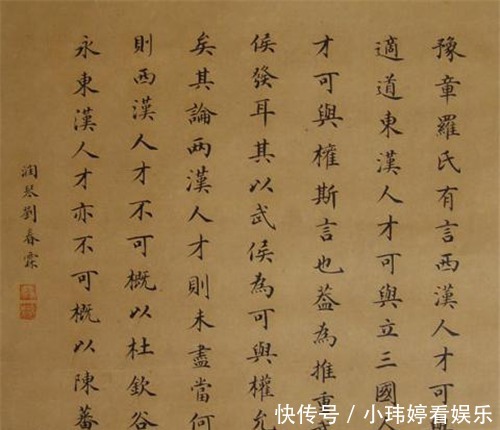 豫章羅氏有言西漢人才可與
適道東漢人才可與立三國人
才可與權斯言也蓋為推重
侯發耳其以武侯為可與權允
矣其論兩漢人才則未盡當何
則西漢人才不可概以杜欽谷
永東漢人才亦不可概以陳蕃
潤琴劉春霖
快传号/小玮婷看娱乐